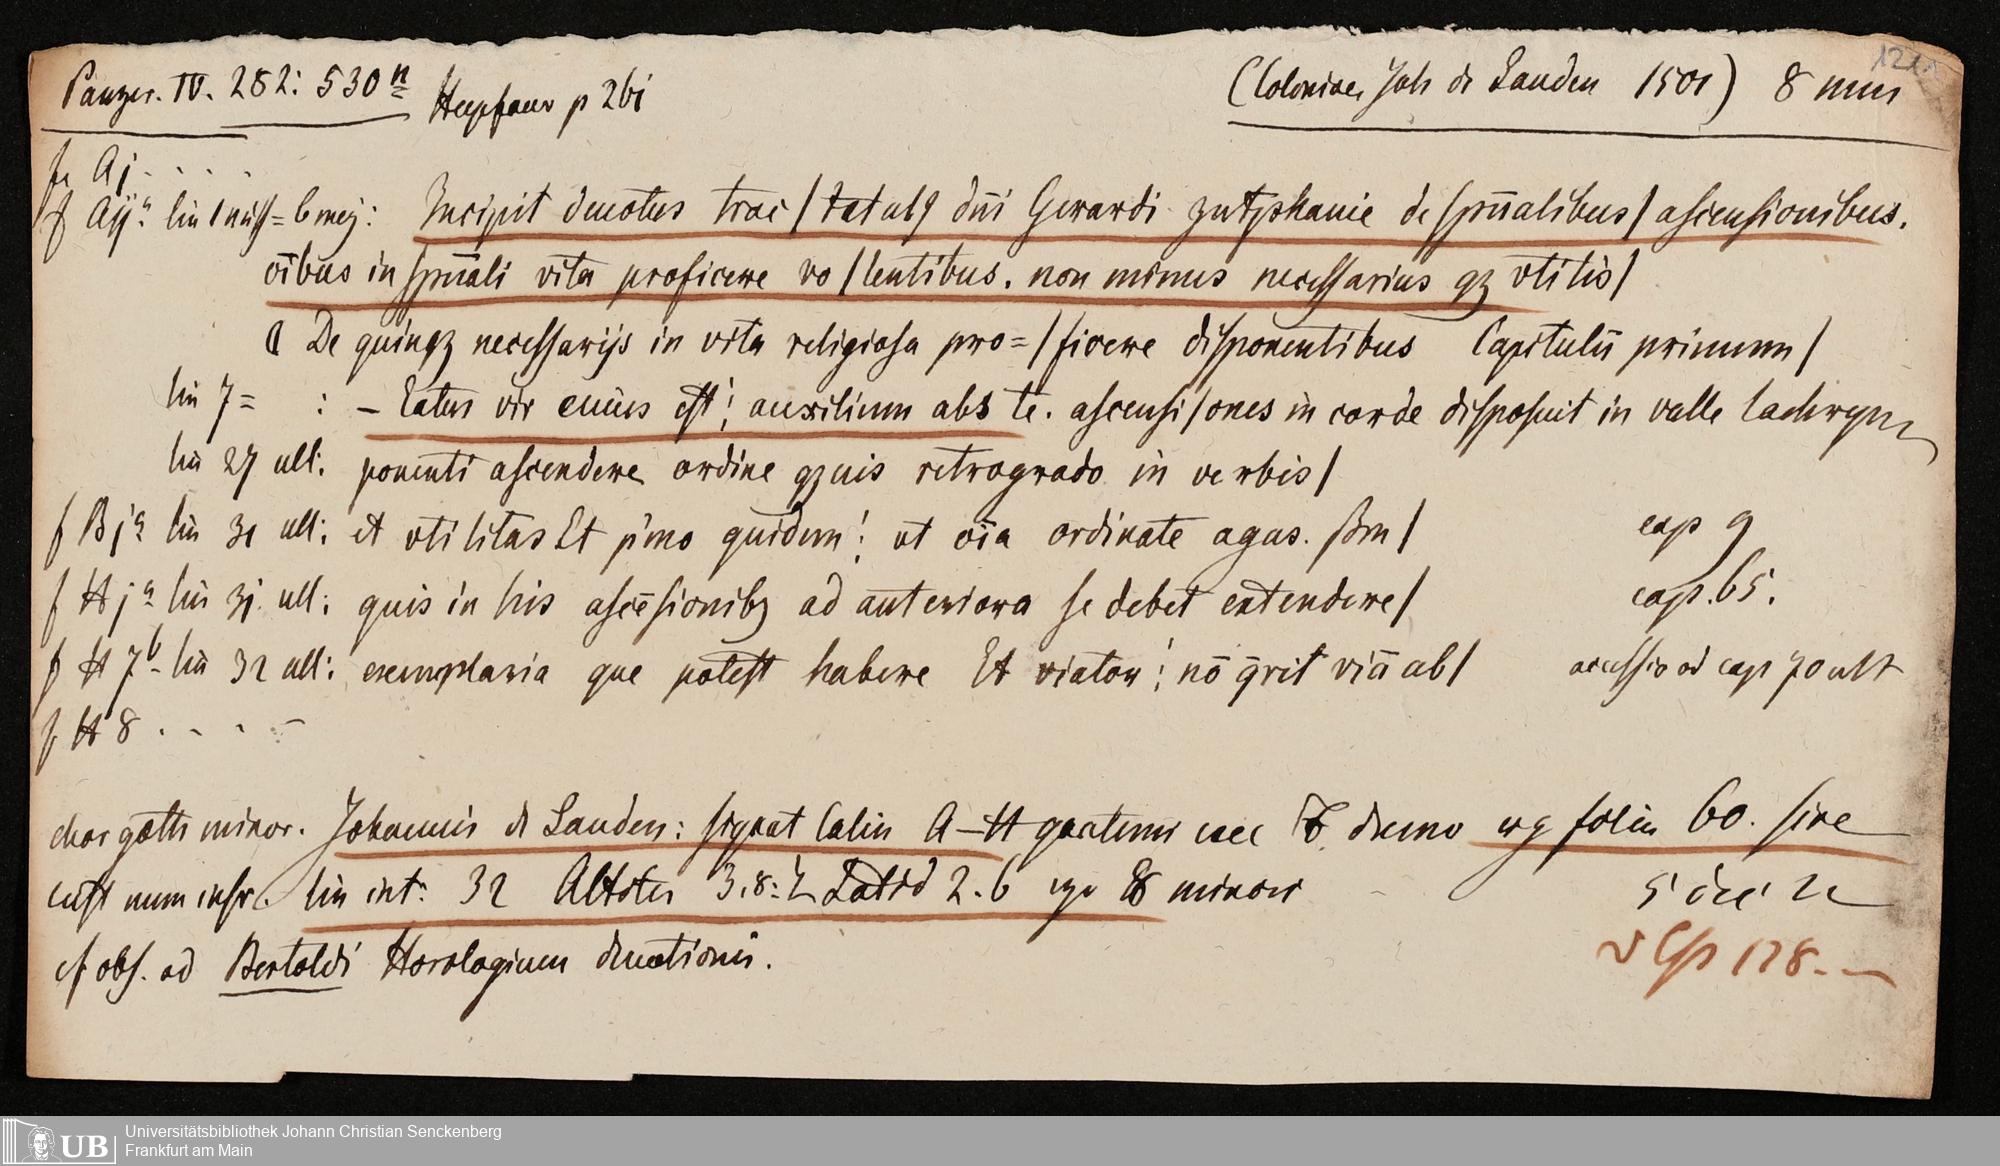 Panzer. IV. 282: 530 n Hupfauer p 261 (Coloniae Joh de Landen 1501) 8 min 121
f Aj . . . .
f Aij a lin 1 = 6 maj: Incipit deuotus trac / tatul9 dni Gerardi zutphanie de spūalibus / ascensionibus.
oībus in spūali vita proficere vo / lentibus. non minus necessarius qz vtilis /
De quinqz necessarijs in vita religiosa pro= / ficere disponentibus Capitulū primum /
lin 7 = : – Eatus vir cuius est! auxilium abs te. ascensi / ones in corde disposuit in valle lachrym
lin 27 ult: ponenti ascendere ordine qzuis retrogrado in verbis /
f Bj a lin 31 ult: et vtilitas Et pimo quidem! ut oīa ordinate agas. ßm / cap 9
f H j a lin 31 ult: quis in his ascēsionibz ad anteriora se debet extendere / cap. 65.
f H 7 b lin 32 ult: exemplaria que potest habere Et viator! nō q̄rit viā ab / accessio ad cap 70 ult
f H 8 . - . -
char goth minor. Johannis de Landen: signat Calin A – H quaterni folia 60. sive
cust num insr. lin int: 32 Altit 3.8: Latid 2.6 8 minori 5
cf obs. ad Bertoldi Horologium deuotionis. 128. –
UB
Universitätsbibliothek Johann Christian Senckenberg
Frankfurt am Main